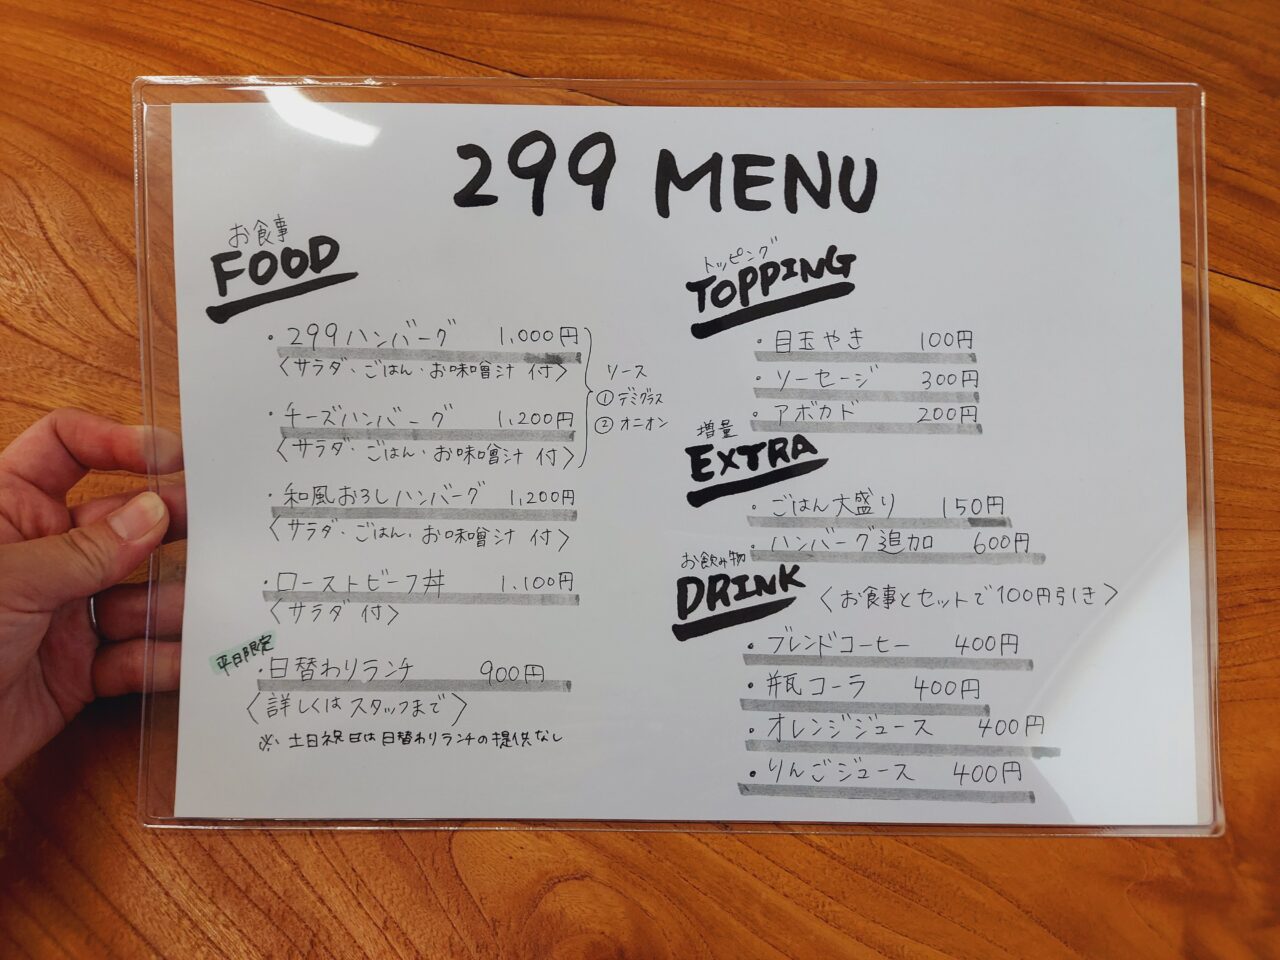 299 MENU
お食事
FOOD
・299ハンバーグ 1,000円
〈サラダ・ごはん・お味噌汁 付〉
・チーズハンバーグ 1,200円
〈サラダ・ごはん・お味噌汁 付〉
ソース
① デミグラス
② オニオン
・和風おろしハンバーグ 1,200円
〈サラダ・ごはん・お味噌汁 付〉
・ローストビーフ丼 1,100円
〈サラダ 付〉
平日限定
・日替わりランチ 900円
〈詳しくはスタッフまで〉
※ 土日祝日は日替わりランチの提供なし
トッピング
TOPPING
・目玉やき 100円
・ソーセージ 300円
・アボカド 200円
増量
EXTRA
・ごはん大盛り 150円
・ハンバーグ追加 600円
お飲み物
DRINK 〈お食事とセットで100円引き〉
・ブレンドコーヒー 400円
・瓶コーラ 400円
・オレンジジュース 400円
・りんごジュース 400円